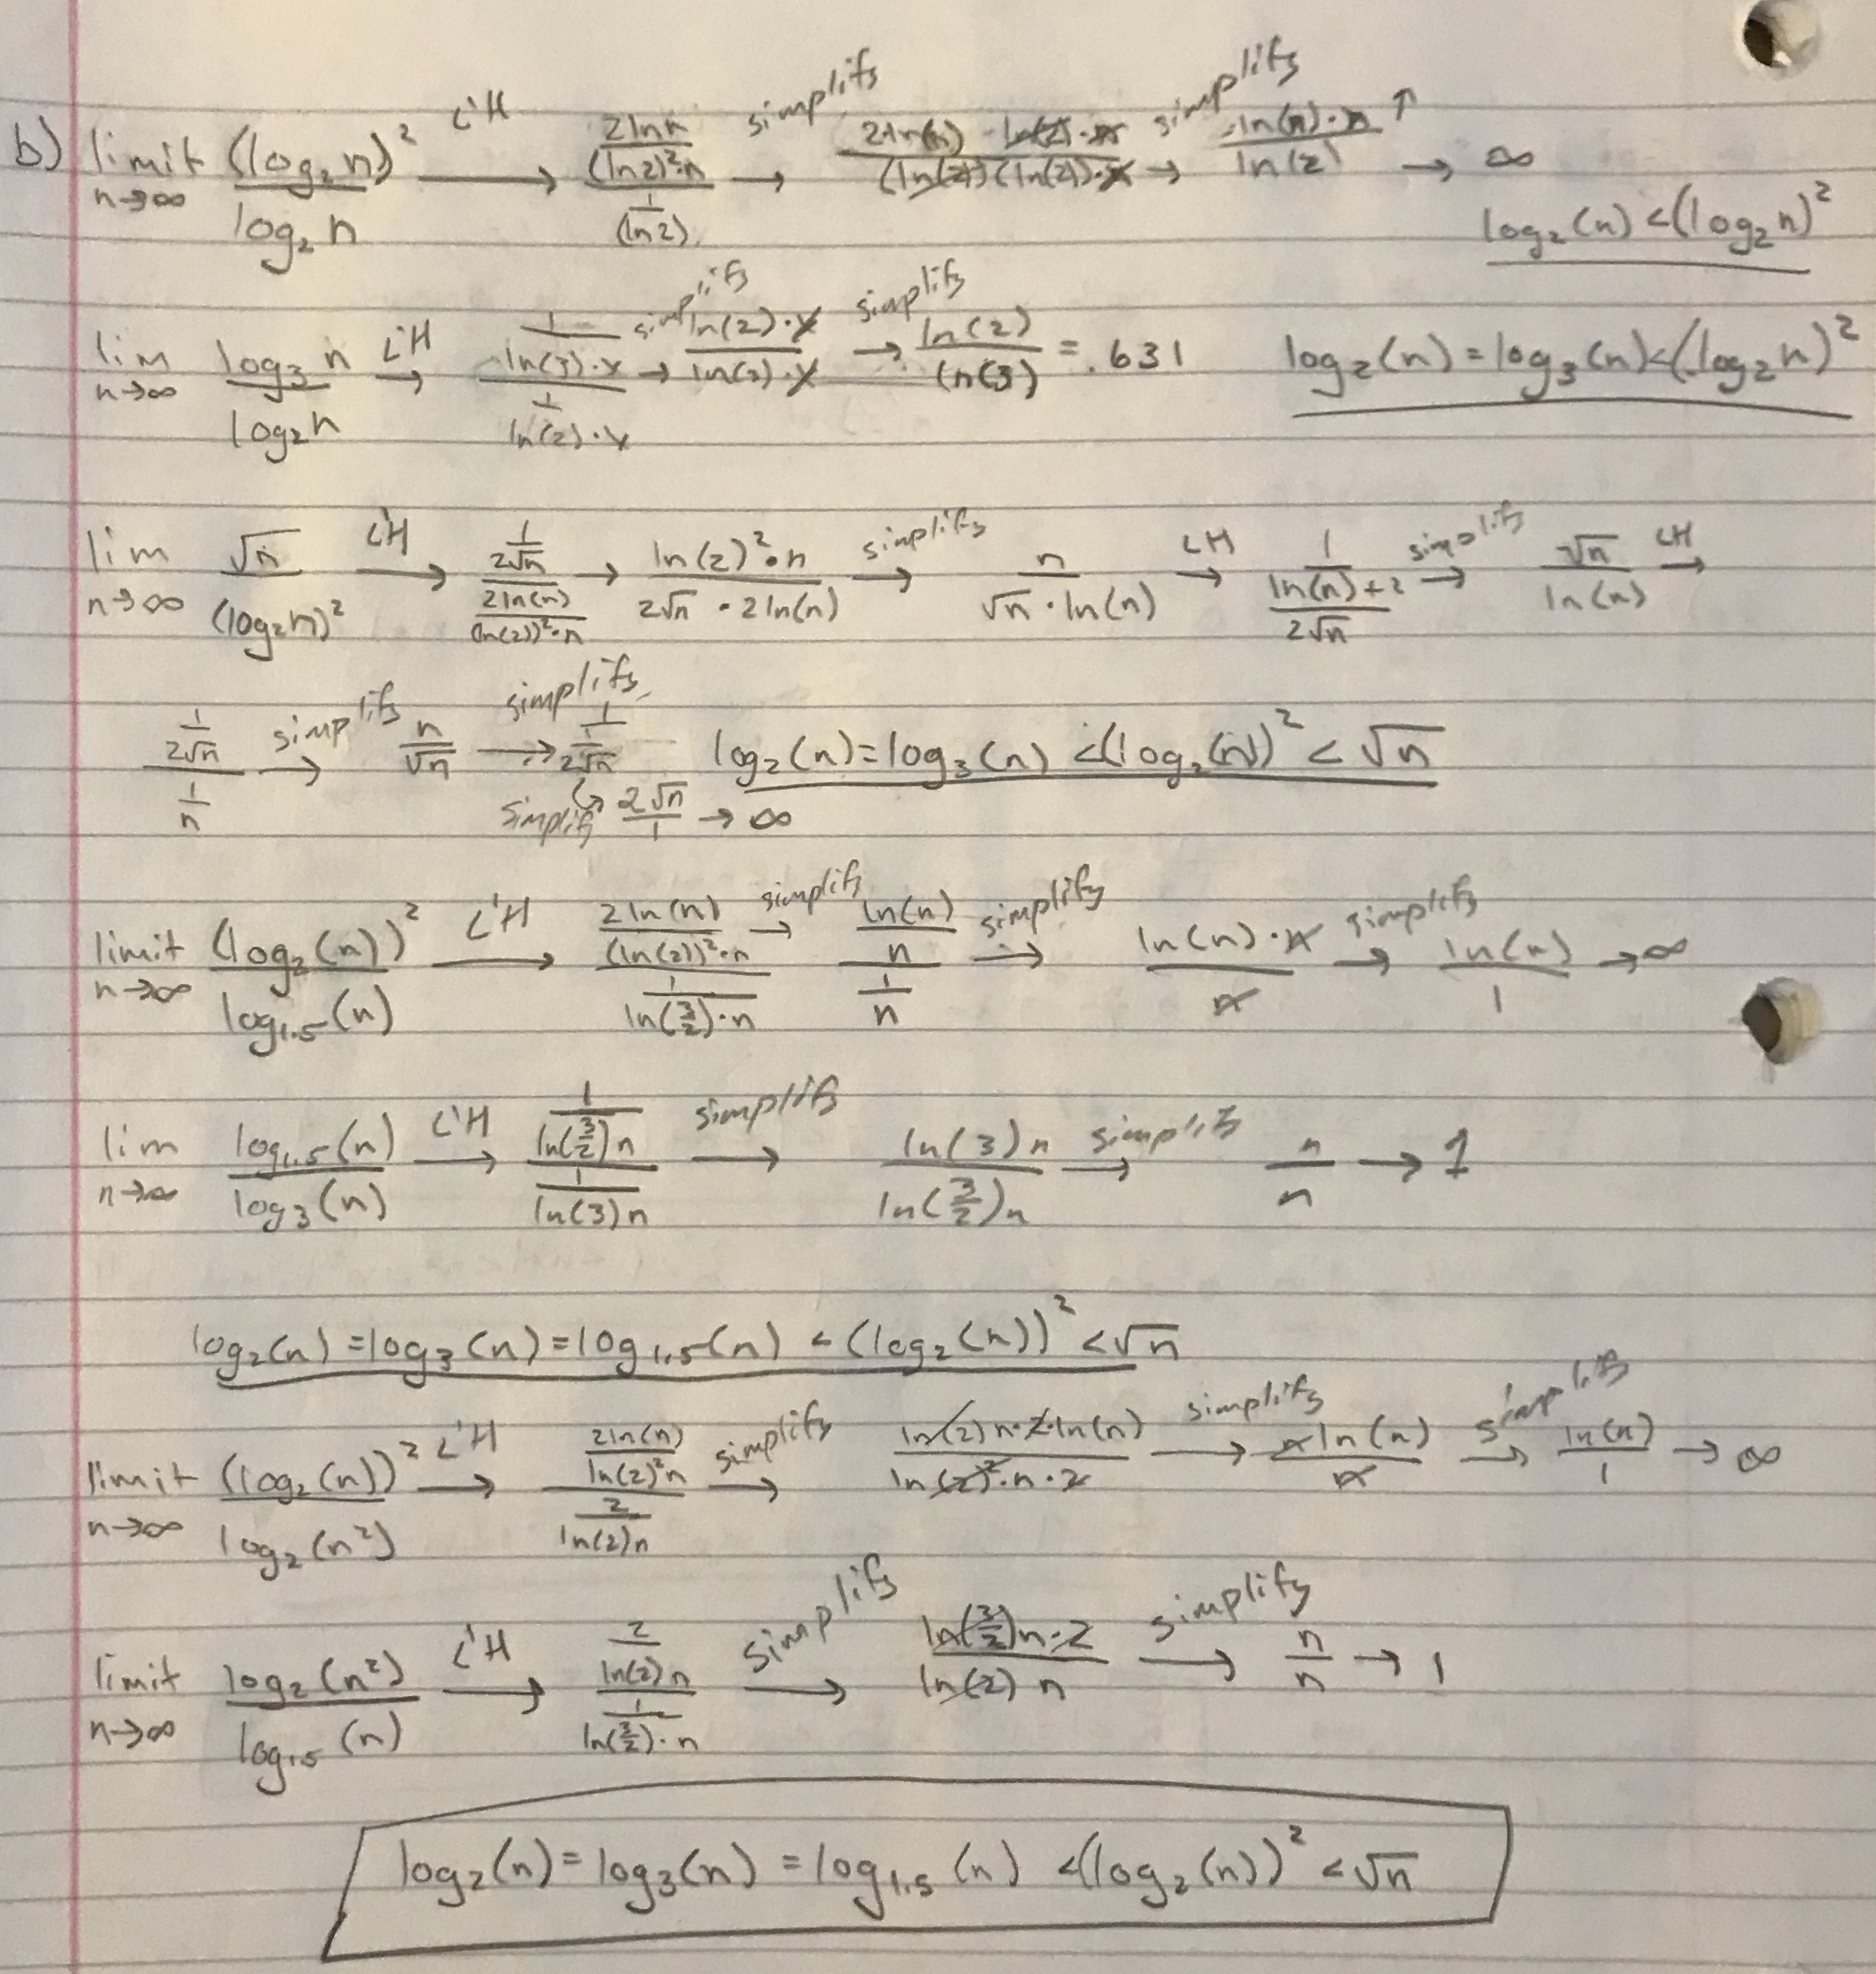 b) limit n→∞ (log₂ n)² / log₂ n L'H → (2 ln n / (ln 2)²·n) / (1 / (ln 2)) simplify → 2 ln(n) · ln(2) · n / (ln(2))(ln(2)) · n simplify → ln(n) · n ↑ / ln(2) → ∞
log₂(n) < (log₂ n)²
lim n→∞ log₃ n / log₂ n L'H → (1 / ln(3)·x) / (1 / ln(2)·x) simplify → ln(2)·x / ln(3)·x simplify → ln(2) / ln(3) = .631 log₂(n) = log₃(n) < (log₂ n)²
lim n→∞ √n / (log₂ n)² L'H → (1 / 2√n) / (2 ln(n) / (ln(2))²·n) → ln(2)²·n / 2√n · 2 ln(n) simplify → n / √n · ln(n) L'H → 1 / ((ln(n)+2) / 2√n) simplify → √n / ln(n) L'H →
(1 / 2√n) / (1 / n) simplify → n / √n simplify → 1 / (1 / 2√n) log₂(n) = log₃(n) < (log₂(n))² < √n
simplify ↪ 2√n / 1 → ∞
limit n→∞ (log₂(n))² / log₁.₅(n) L'H → (2 ln(n) / (ln(2))²·n) / (1 / ln(3/2)·n) simplify → (ln(n) / n) / (1 / n) simplify → ln(n)·n / n simplify → ln(n) / 1 → ∞
lim n→∞ log₁.₅(n) / log₃(n) L'H → (1 / ln(3/2)n) / (1 / ln(3)n) simplify → ln(3)n / ln(3/2)n simplify → n / n → 1
log₂(n) = log₃(n) = log₁.₅(n) < (log₂(n))² < √n
limit n→∞ (log₂(n))² / log₂(n²) L'H → (2 ln(n) / ln(2)²n) / (2 / ln(2)n) simplify → ln(2)n·2·ln(n) / ln(2)²·n·2 simplify → n ln(n) / n simplify → ln(n) / 1 → ∞
limit n→∞ log₂(n²) / log₁.₅(n) L'H → (2 / ln(2)n) / (1 / ln(3/2)·n) simplify → ln(3/2)n·2 / ln(2)n simplify → n / n → 1
log₂(n) = log₃(n) = log₁.₅(n) < (log₂(n))² < √n